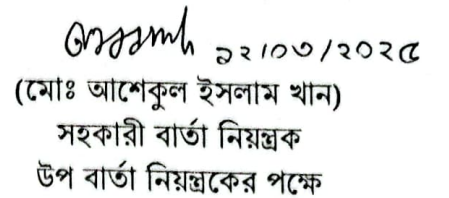 ২২/০৩/২০২৫
(মোঃ আশেকুল ইসলাম খান)
সহকারী বার্তা নিয়ন্ত্রক
উপ বার্তা নিয়ন্ত্রকের পক্ষে